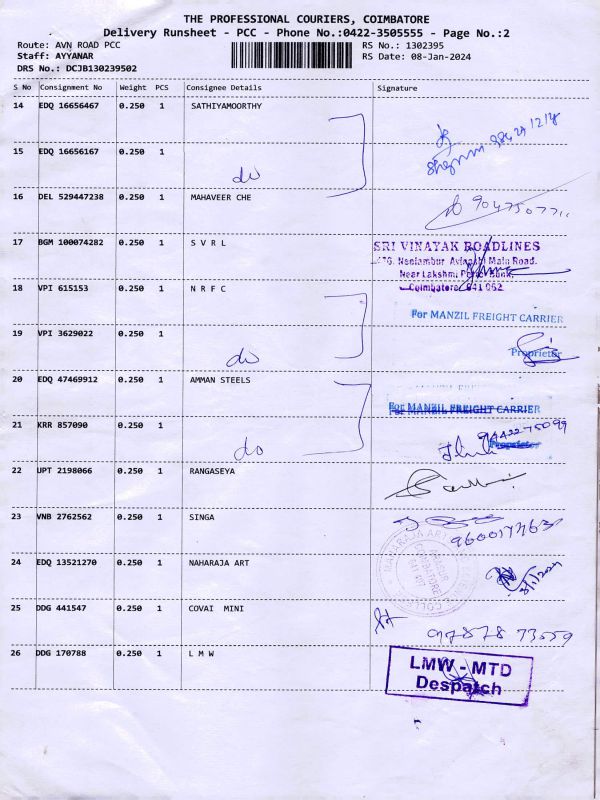 THE PROFESSIONAL COURIERS, COIMBATORE
Delivery Runsheet - PCC - Phone No.:0422-3505555 - Page No.:2
Route: AVN ROAD PCC
Staff: AYYANAR
DRS No.: DCJB130239502
RS No.: 1302395
RS Date: 08-Jan-2024
S No Consignment No Weight PCS Consignee Details Signature
14 EDQ 16656467 0.250 1 SATHIYAMOORTHY
15 EDQ 16656167 0.250 1 do
16 DEL 529447238 0.250 1 MAHAVEER CHE
17 BGM 100074282 0.250 1 S V R L SRI VINAYAK ROADLINES
Neelambur Avinashi Main Road.
Near Lakshmi
Coimbatore 641 062
18 VPI 615153 0.250 1 N R F C For MANZIL FREIGHT CARRIER
19 VPI 3629022 0.250 1 do Proprietor
20 EDQ 47469912 0.250 1 AMMAN STEELS For MANZIL FREIGHT CARRIER
21 KRR 857090 0.250 1 do Proprietor
22 UPT 2198066 0.250 1 RANGASEYA
23 VNB 2762562 0.250 1 SINGA
24 EDQ 13521270 0.250 1 NAHARAJA ART
25 DDG 441547 0.250 1 COVAI MINI 97878 73559
26 DDG 170788 0.250 1 L M W LMW - MTD
Despatch